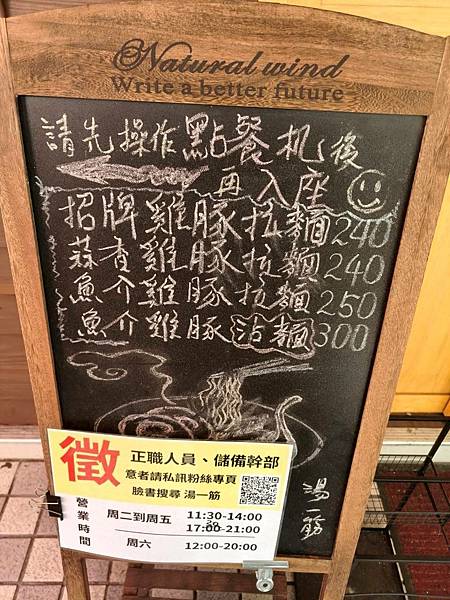 Natural wind
Write a better future
請先操作點餐机後
再入座
招牌雞豚拉麵240
蒜香雞豚拉麵240
魚介雞豚拉麵250
魚介雞豚沾麵300
湯一筋
徵
正職人員、儲備幹部
意者請私訊粉絲專頁
臉書搜尋 湯一筋
營業時間
周二到周五 11:30-14:00
17:00-21:00
周六 12:00-20:00